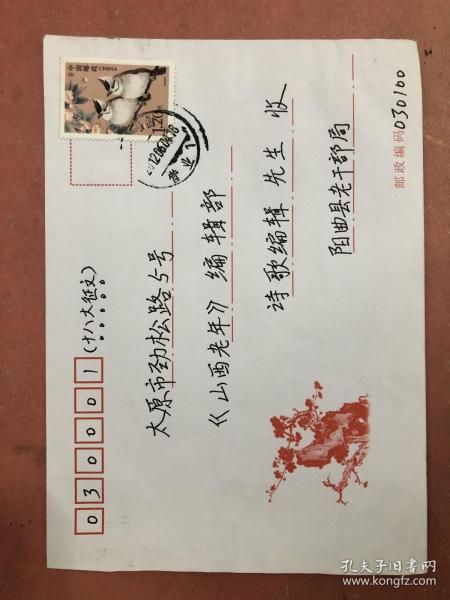 030001
(十八大征文)
太原市劲松路5号
《山西老年》编辑部
诗歌编辑 先生 收
阳曲县老干部局
邮政编码 030100
中国邮政 CHINA
1.20元
孔夫子旧书网
www.kongfz.com